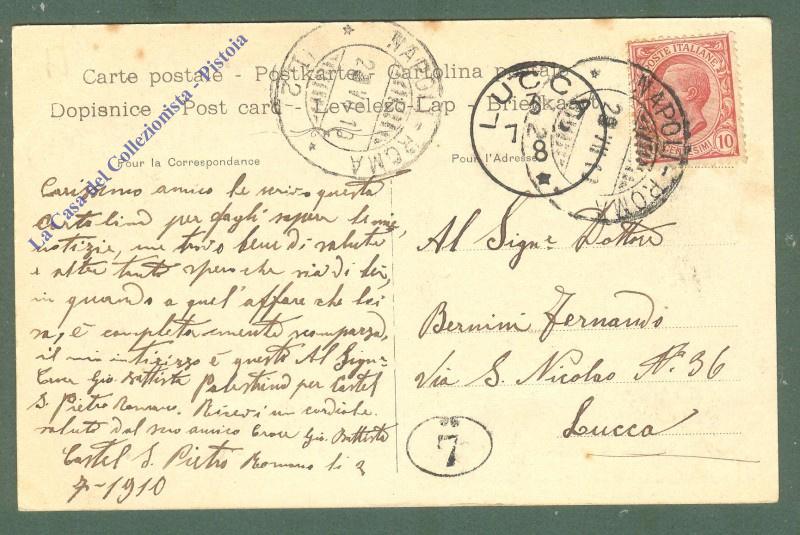 Carte postale - Postkarte - Cartolina postale
Dopisnice - Post card - Levelezö-Lap - Briefkaart
Pour la Correspondance
Pour l'Adresse
La Casa del Collezionista - Pistoia
NAPOLI - ROMA
LUCCA
7 8
NAPOLI - ROMA
POSTE ITALIANE
CENTESIMI 10
Carissimo amico le scrivo questa
Cartolina per fargli sapere le mie
notizie, me trovo bene di salute
e altre tanto spero che sia di lei,
in quando a quel'affare che lei
sa, è completamente scomparza,
il mio intirizzo è questo Al Sign.r
Croce Gio. Battista Palestrina per Castel
S. Pietro Romano. Ricevi un cordiale
saluto dal suo amico Croce Gio. Battista
Castel S. Pietro Romano li 2
7-1910
Al Sign.r Dottore
Bernini Fernando
Via S. Nicolao N.° 36
Lucca
7